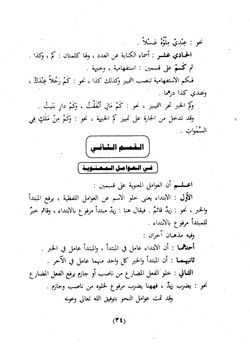 نحو : عِنْدِي مِلْوُهُ عَسَلاً .
الحادي عشر : أسماء الكناية عن العدد ، وفا كلمتان : كم ، وكذا .
ثم كَمْ على قسمين : استفهامية ، وخبرية .
فكم الاستفهامية تنصب التمييز وكذا ، نحو : كَمْ رَجُلاً عِنْدَكَ ،
وعندي كذا درهما .
وكم الخبر تجر التمييز ، نحو : كَمْ مَالٍ أَنْفَقْتُ ، وكَمْ دارٍ بَنَيْتُ .
وقد تدخل من الجارة على تمييز كم الخبرية ، نحو : وَكَمْ مِنْ مَلَكٍ فِي
السَّمَوَاتِ .
القسم الثاني
في العوامل المعنوية
اعلم أن العوامل المعنوية على قسمين :
الأوَّل : الابتداء يعني خلو الاسم عن العوامل اللفظية ، يرفع المبتدأ
والخبر ، نحو : زيدٌ قائمٌ . فيقال هنا : زيدٌ مبتدأ مرفوع بالابتداء ، وقائم خبرٌ
مرفوع بالابتداء .
وفيه مذهبان آخران :
أحدهما : أن الابتداء عامل في المبتدأ ، والمبتدأ عامل في الخبر .
ثانيهما : أن المبتدأ والخبر كل واحد منهما عامل في الآخر .
الثاني : خلو الفعل المضارع من ناصب أو جازم يرفع الفعل المضارع
نحو : يضرب زيدٌ ، فهنا يضرب مرفوع لخلوه من ناصب وجازم .
وقد تمت عوامل النحو بتوفيق الله تعالى وعونه
(٣٤)